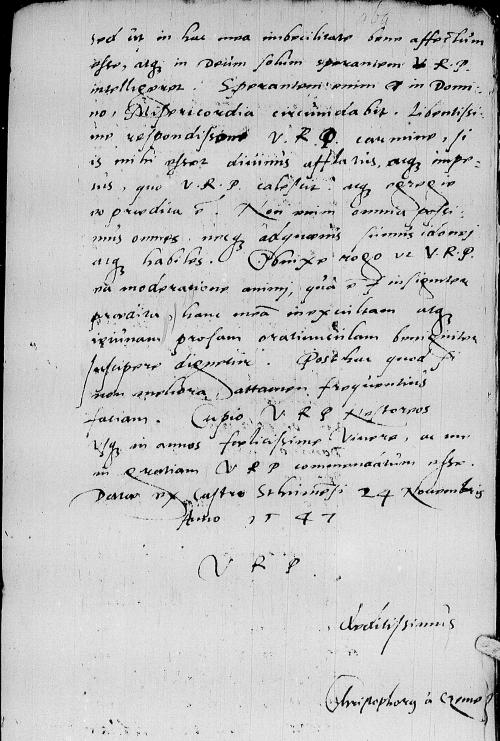 sed ut in hac mea imbecilitate bene affectum
esse, atq3 in Deum solum sperantem V. R. P.
intelligeret. Sperantem enim in Domi-
no, Misericordia circumdabit. Libentissi-
me respondissem V. R. P. carmine, si
is mihi esset divinus afflatus, atq3 impe-
tus, quo V. R. P. calescit atq3 egregie
praedita ē. Non enim omnia possu-
mus omnes. neq3 ad quaevis sumus idonei
atq3 habiles. Obnixe rogo ut V. R. P.
ea moderatione animi, qua ē insigniter
praedita, hanc meā inexcultam atq3
prosam oratiunculam benigniter
suscipere dignetur. Posthac quod si
non meliora, attamen frequentius
faciam. Cupio V. R. P. Nestoreos
Usq3 in annos foelicissime vivere, ac me
in gratiam V R P commendatum esse.
Datae ex Castro 24 Novembris
Anno 1547
V R P.
deditissimus
Christophorus a